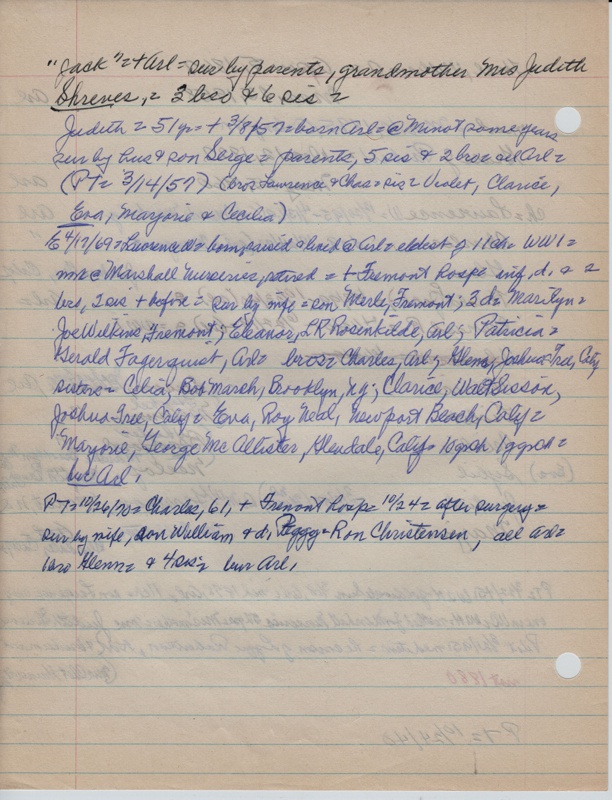 "Jack" = + Arl = sur by parents, grandmother Mrs Judith
Shreves, = 3 bro & 6 sis =
Judith = 51 yr = + 3/8/57 = born Arl = @ Minot some years
sur by hus & son Serge = parents, 5 sis & 2 bro = all Arl =
(PT = 3/14/57) (bros Lawrence & Chas = sis = Violet, Clarice,
Eva, Marjorie & Cecilia)
E 4/17/69 = Lawrence W = born, raised & lived @ Arl = eldest of 11 ch = WW1 =
mr c Marshall Nurseries, retired = + Fremont Hosp inf. d. & 2
bro, 2 sis + before = sur by wife = son Merle, Fremont; 3 d = Marilyn =
Joe Wilkins, Fremont; Eleanor, L.R. Rosenkilde, Arl; Patricia =
Gerald Fagerquist, Arl = bros = Charles, Arl; Glenn, Joshua Tree, Caly
sisters = Celia, Bob March, Brooklyn, NY; Clarice, Walt Sisson,
Joshua Tree, Caly = Eva, Roy Neal, Newport Beach, Caly =
Marjorie, George McAllister, Glendale, Calif = 10 grch 1 ggrch =
bur Arl,
PT = 10/26/70 = Charles, 61, + Fremont Hosp = 10/24 = after surgery =
sur by wife, son William & d, Peggy = Ron Christensen, all Arl =
bro Glenn = & 4 sis = bur Arl,